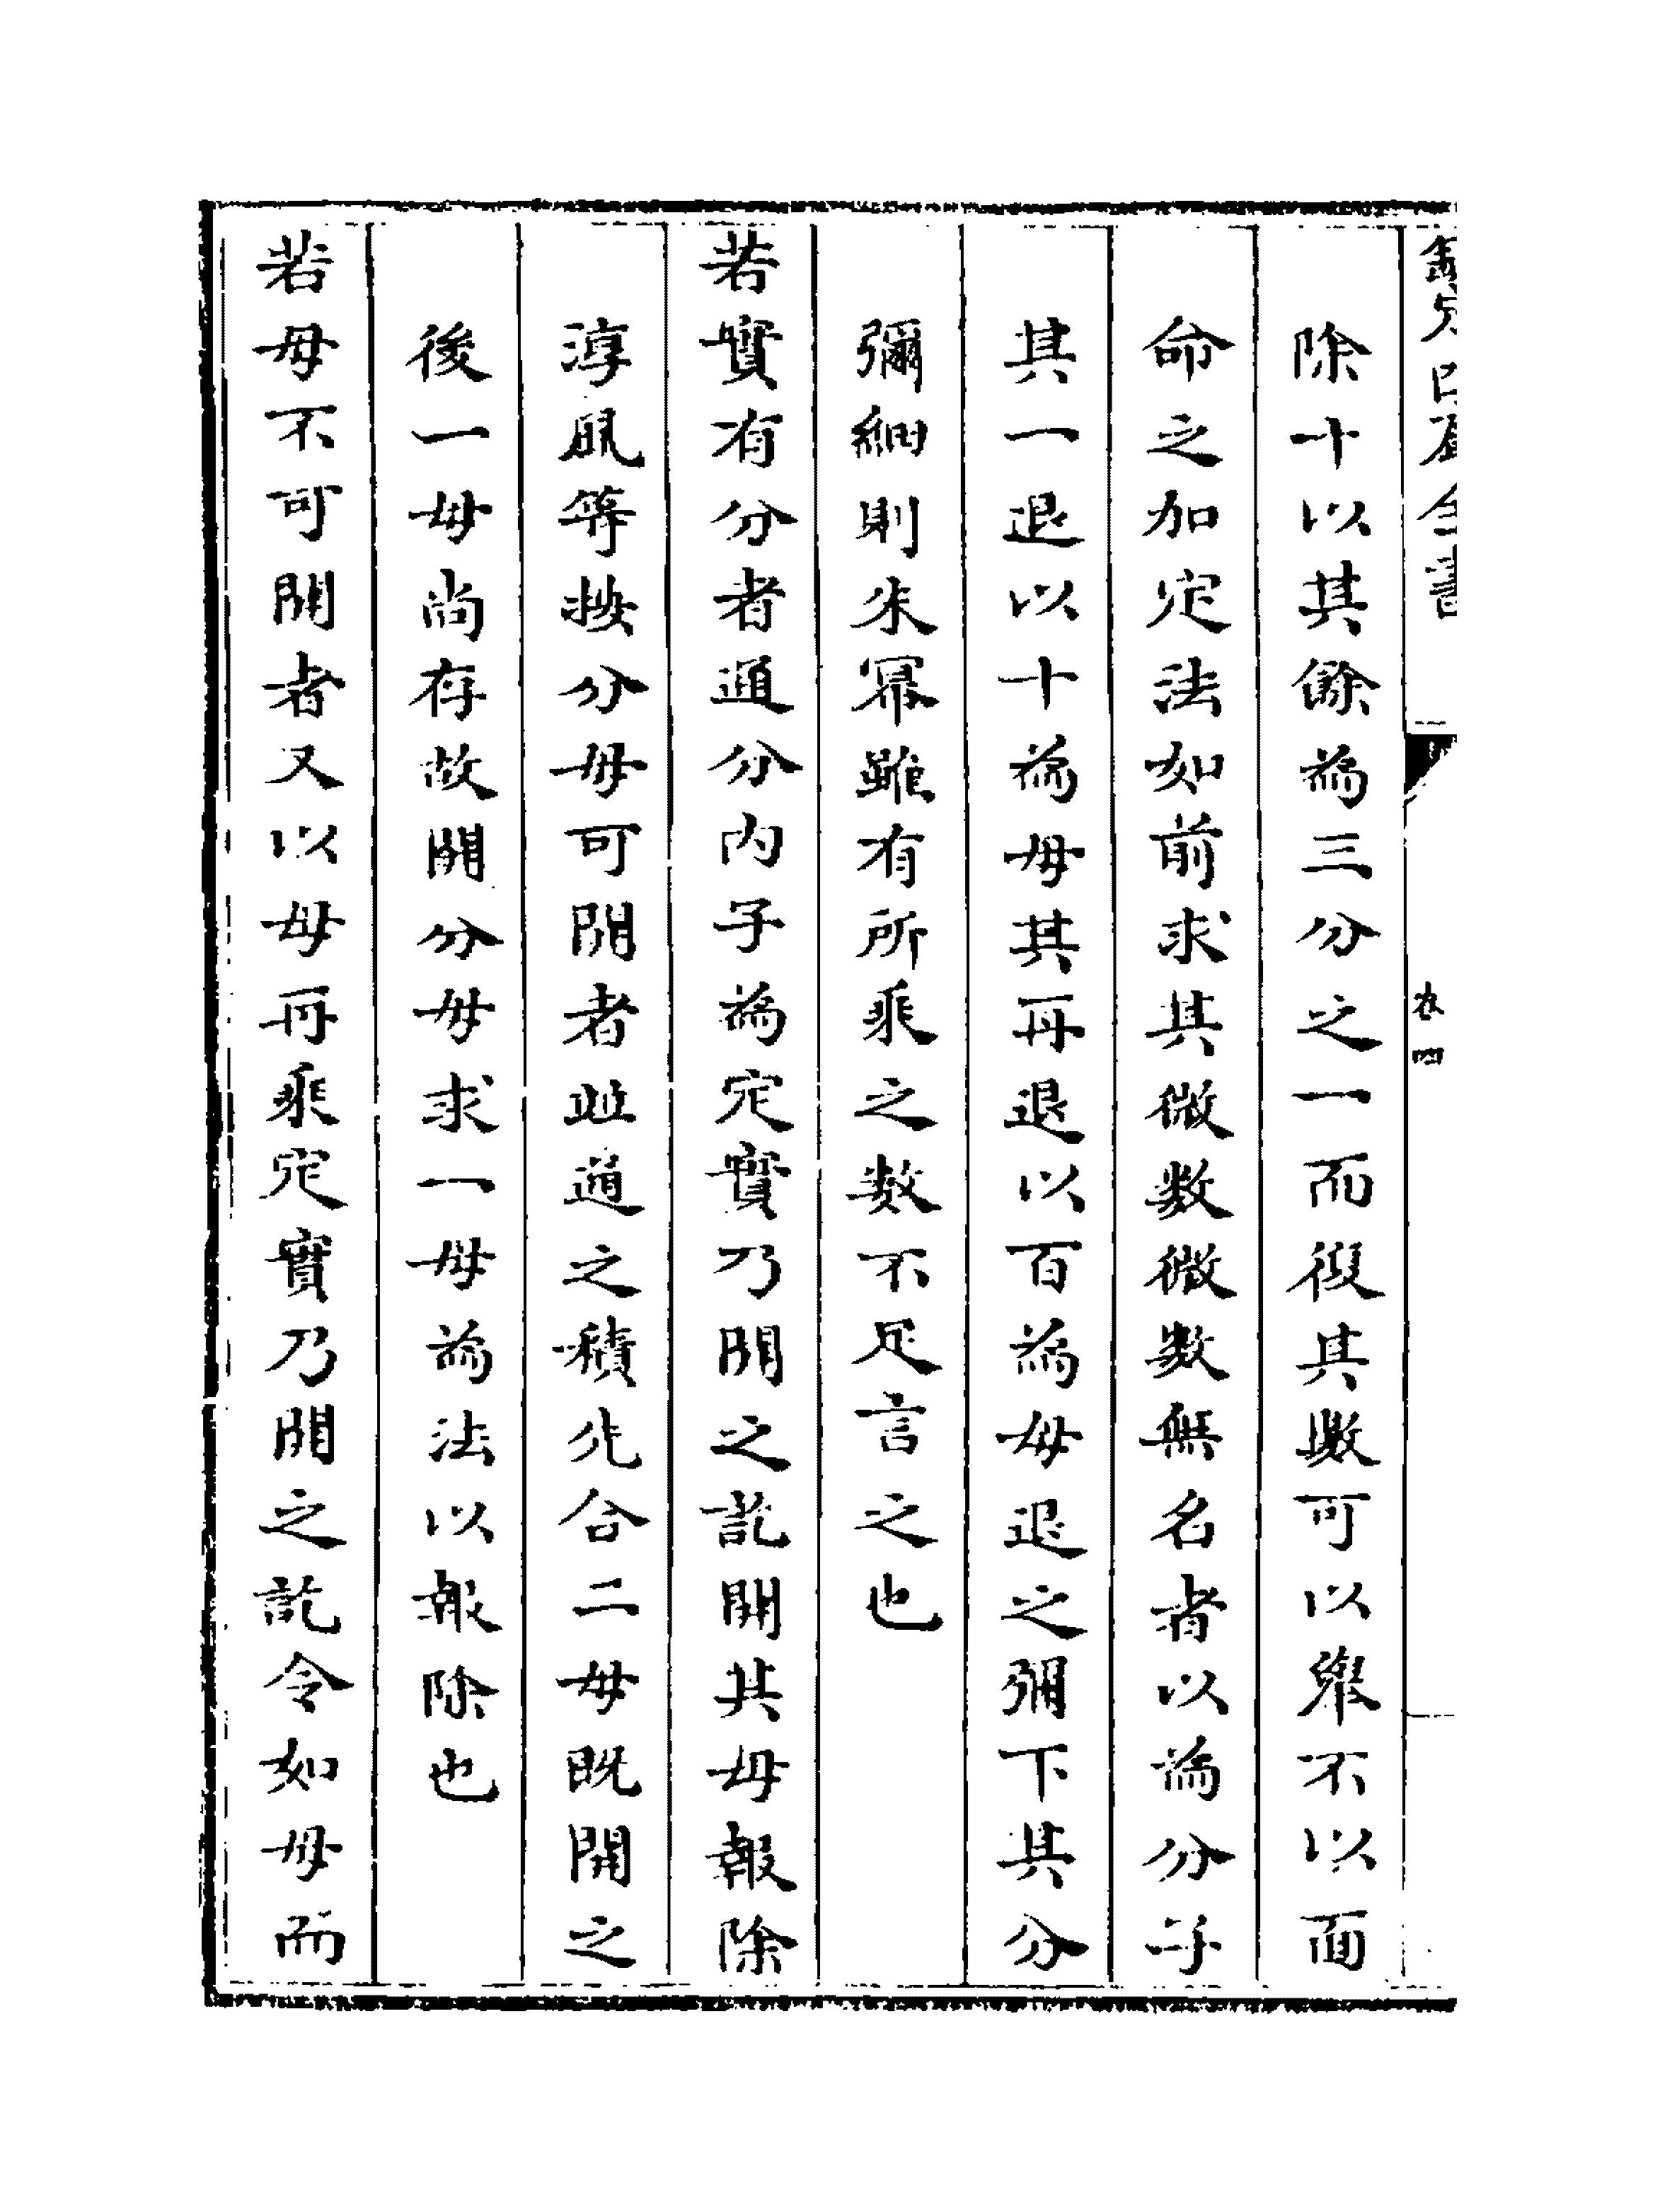 欽定四庫全書
卷四
除十以其餘為三分之一而復其數可以舉不以面
命之加定法如前求其微數微數無名者以為分子
其一退以十為母其再退以百為母退之彌下其分
彌細則朱冪雖有所乘之數不足言之也
若實有分者通分內子為定實乃開之訖開其母報除
淳風等按分母可開者並通之積先合二母既開之
後一母尚存故開分母求一母為法以報除也
若母不可開者又以母再乘定實乃開之訖令如母而